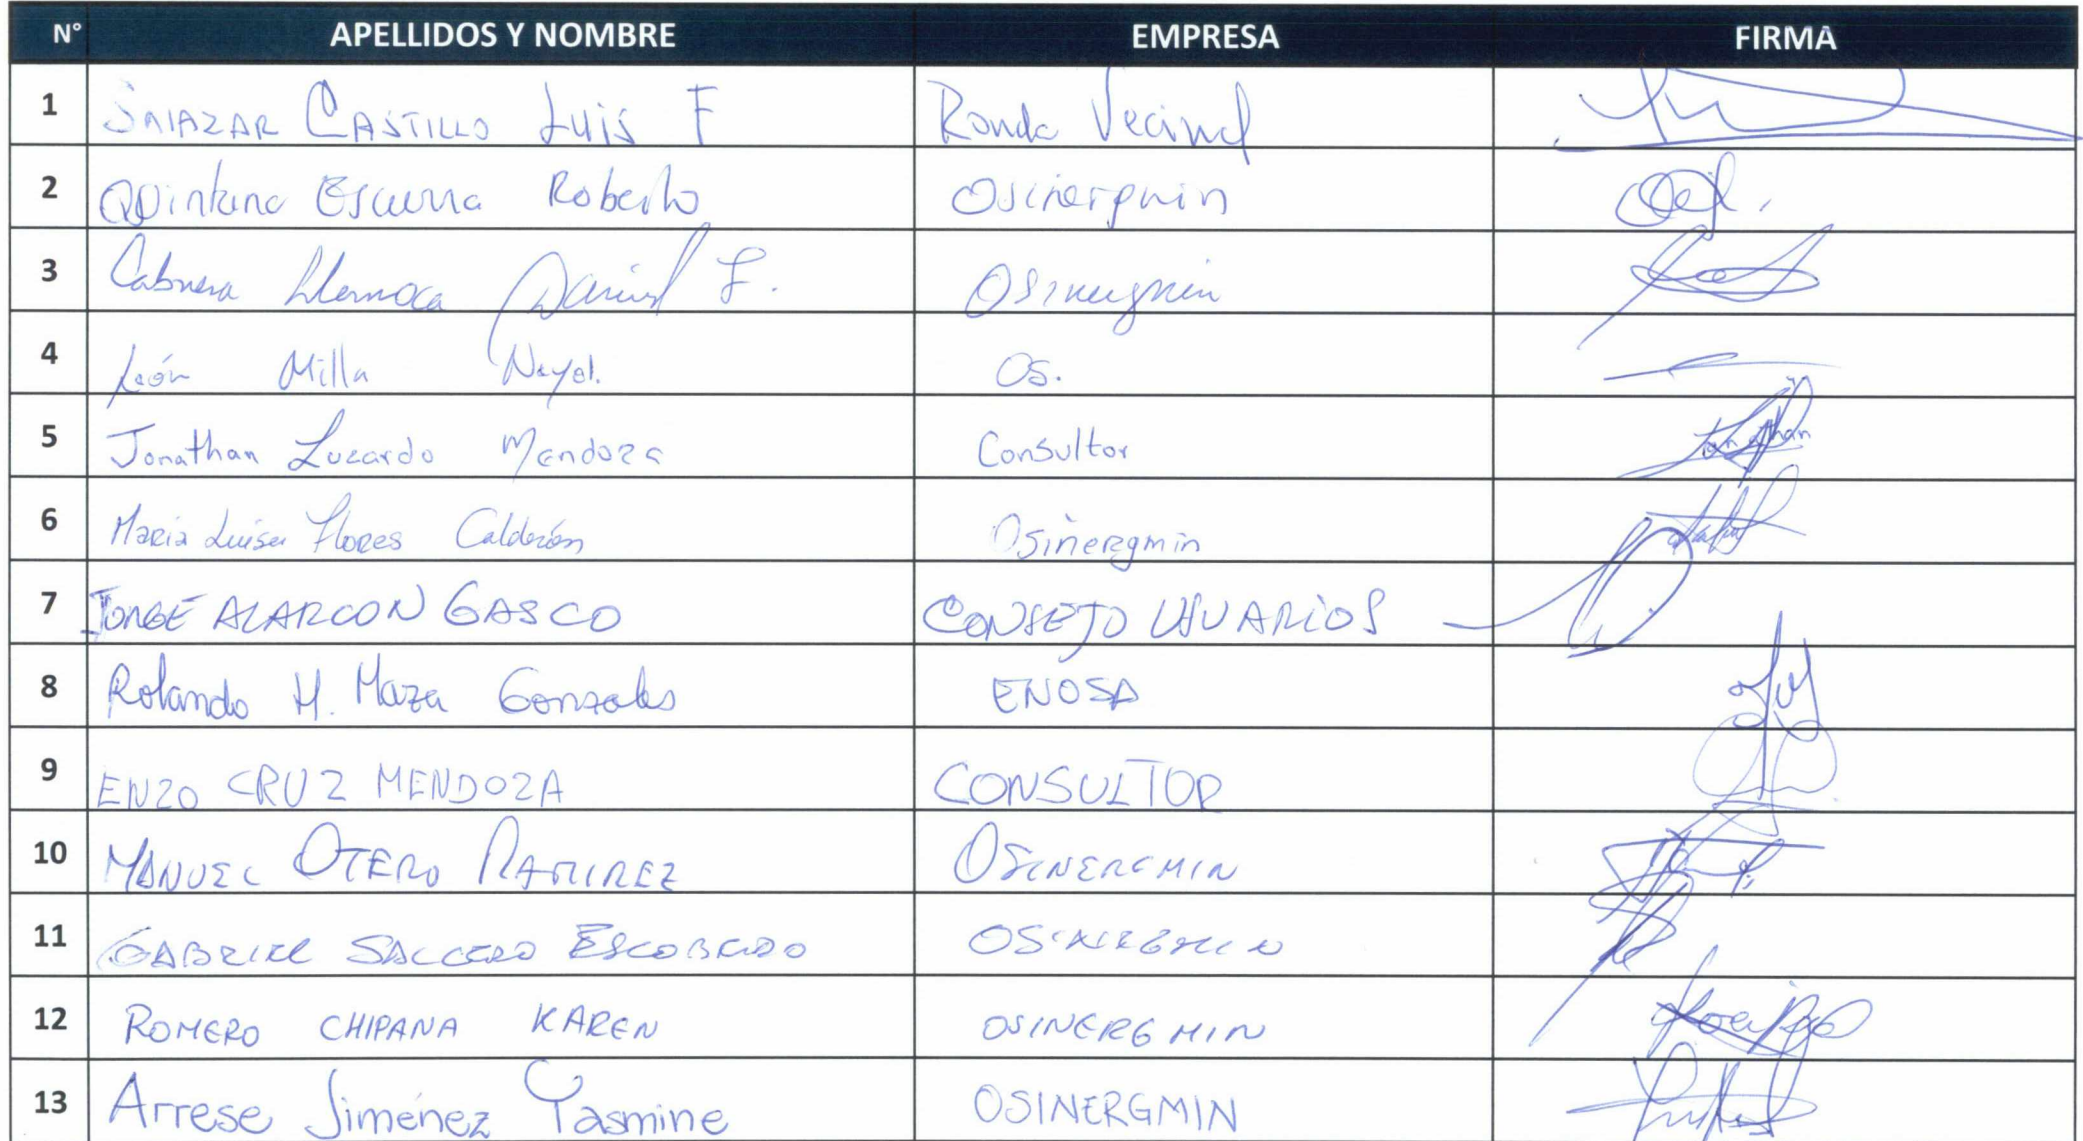 N° APELLIDOS Y NOMBRE EMPRESA FIRMA
1 SALAZAR CASTILLO LUIS F Ronda Vecinal
2 Quintana Escurra Roberto Osinergmin
3 Cabrera Daniel F. Osinergmin
4 León Milla Nayel. Os.
5 Jonathan Luzardo Mendoza Consultor Jonathan
6 Maria Luisa Flores Calderón Osinergmin
7 JORGE ALARCON GASCO CONSEJO USUARIOS
8 Rolando H. Maza Gonzales ENOSA
9 ENZO CRUZ MENDOZA CONSULTOR
10 MANUEL OTERO RAMIREZ OSINERGMIN
11 GABRIEL SALCEDO ESCOBEDO OSINERGMIN
12 ROMERO CHIPANA KAREN OSINERGMIN
13 Arrese Jiménez Yasmine OSINERGMIN